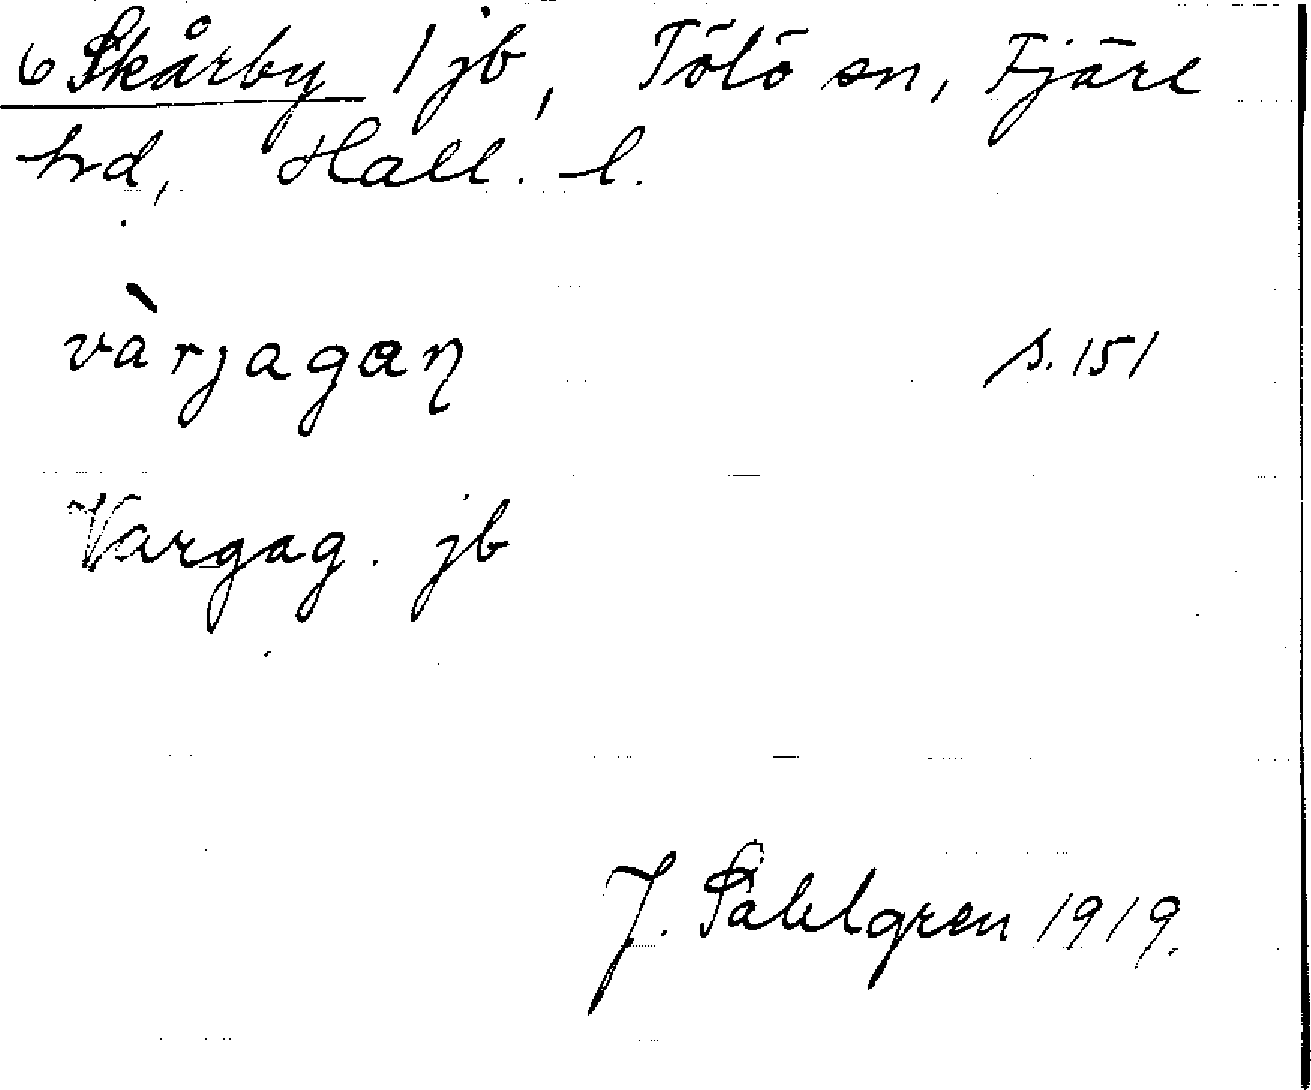 6 Skårby 1 jb, Tölö sn, Fjäre
hrd, Hall. l.
vàrjagan s. 151
Vargag. jb
J. Sahlgren 1919.